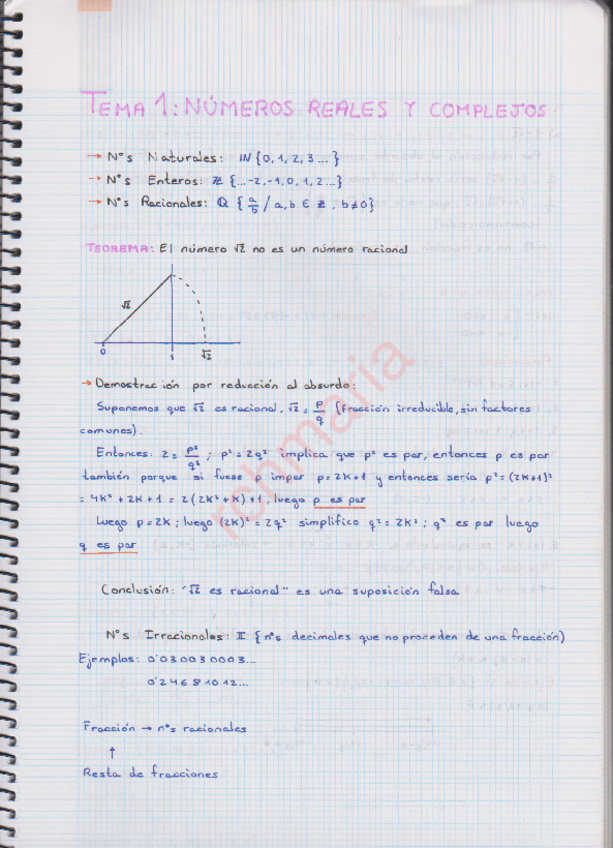 TEMA 1: NÚMEROS REALES Y COMPLEJOS
→ Nºs Naturales: IN {0, 1, 2, 3 ... }
→ Nºs Enteros: ℤ {...-2, -1, 0, 1, 2 ...}
→ Nºs Racionales: ℚ { a/b / a, b ∈ ℤ, b≠0}
TEOREMA: El número √2 no es un número racional
√2
0 1 √2
→ Demostración por reducción al absurdo:
Suponemos que √2 es racional, √2 = p/q (fracción irreducible, sin factores
comunes).
Entonces: 2 = p²/q² ; p² = 2q² implica que p² es par, entonces p es par
también porque si fuese p impar p = 2K+1 y entonces sería p² = (2K+1)²
= 4K² + 2K + 1 = 2(2K² + K) + 1, luego p es par
Luego p = 2K ; luego (2K)² = 2q² simplifico q² = 2K² ; q² es par luego
q es par
Conclusión: "√2 es racional" es una suposición falsa
Nºs Irracionales: II {nºs decimales que no proceden de una fracción)
Ejemplos: 0'030030003...
0'24681012...
Fracción → nºs racionales
↑
Resta de fracciones
rohmaria